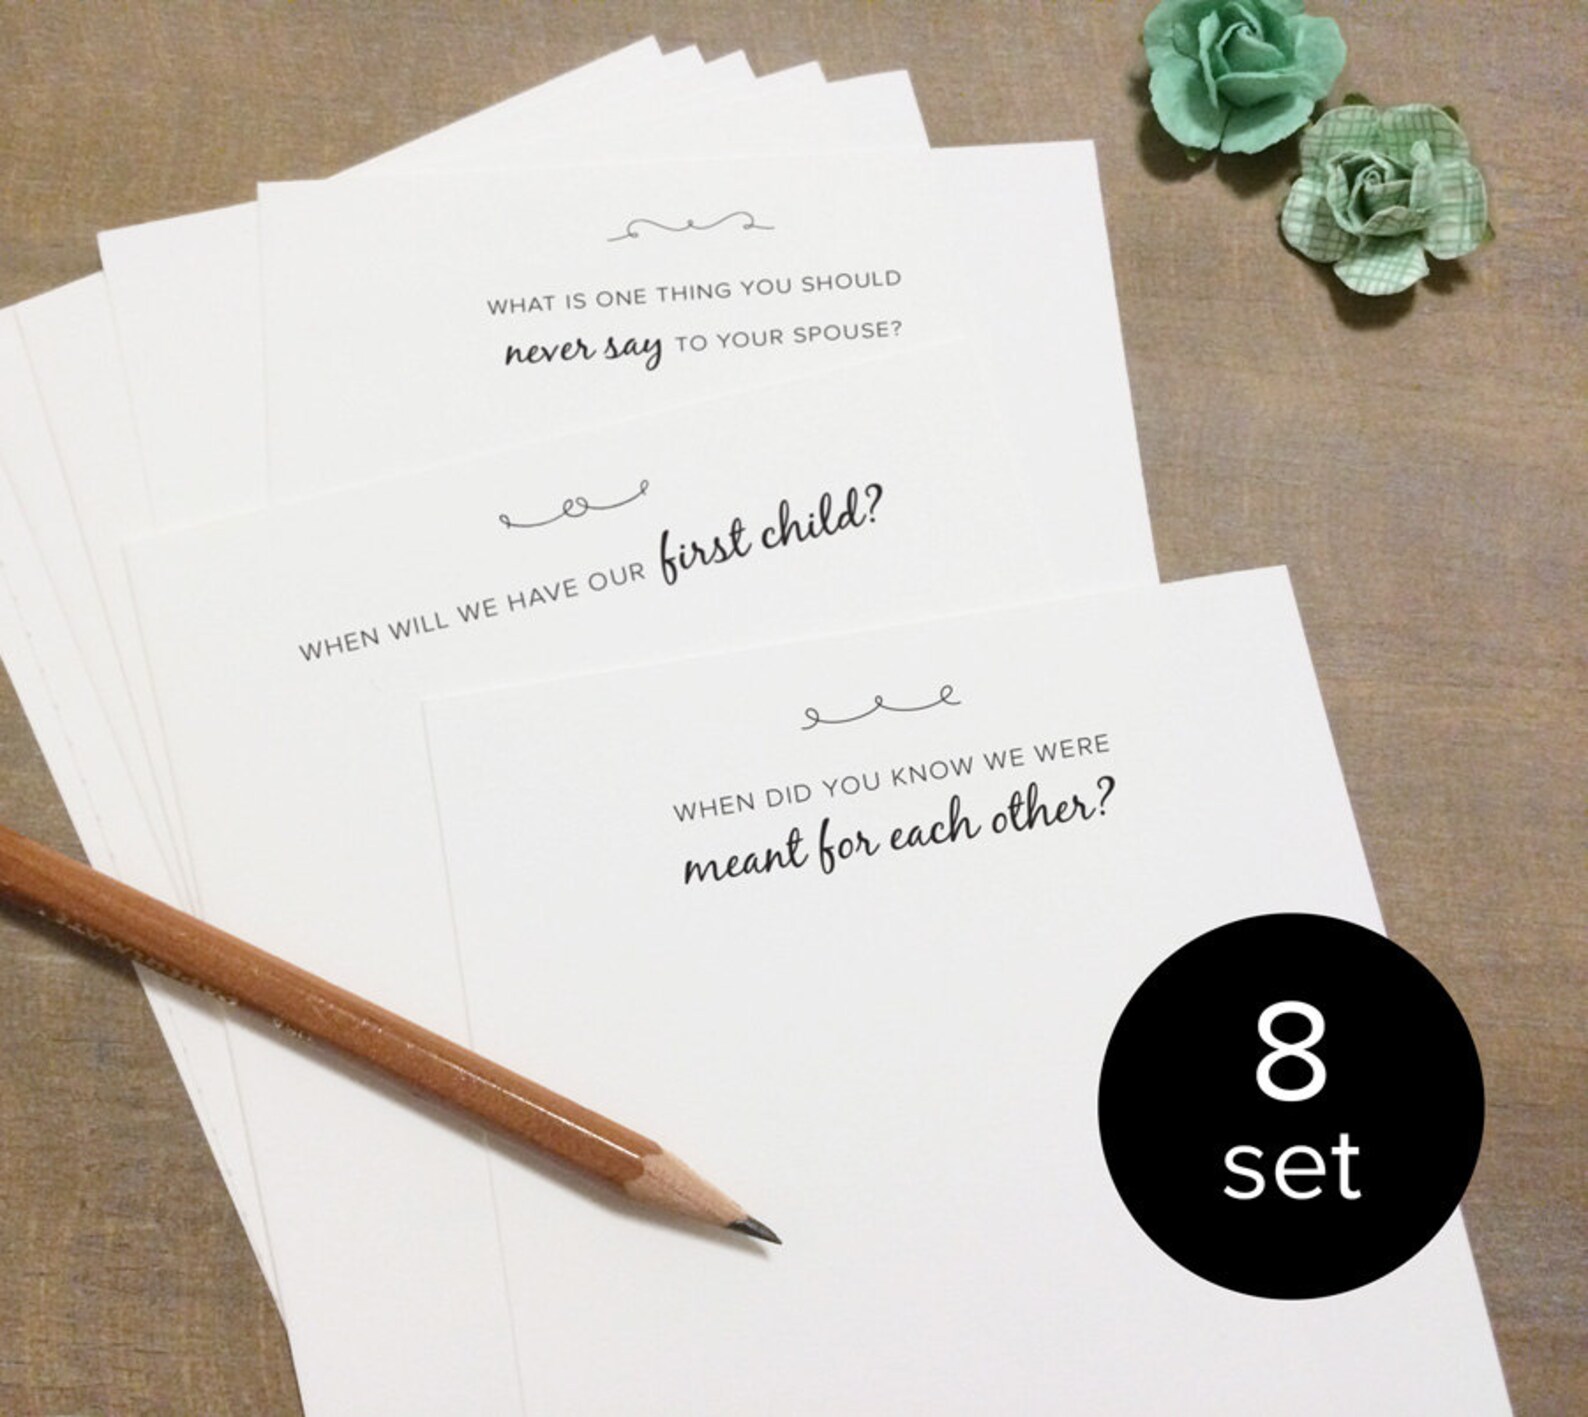 WHAT IS ONE THING YOU SHOULD
never say TO YOUR SPOUSE?
WHEN WILL WE HAVE OUR first child?
WHEN DID YOU KNOW WE WERE
meant for each other?
8
set